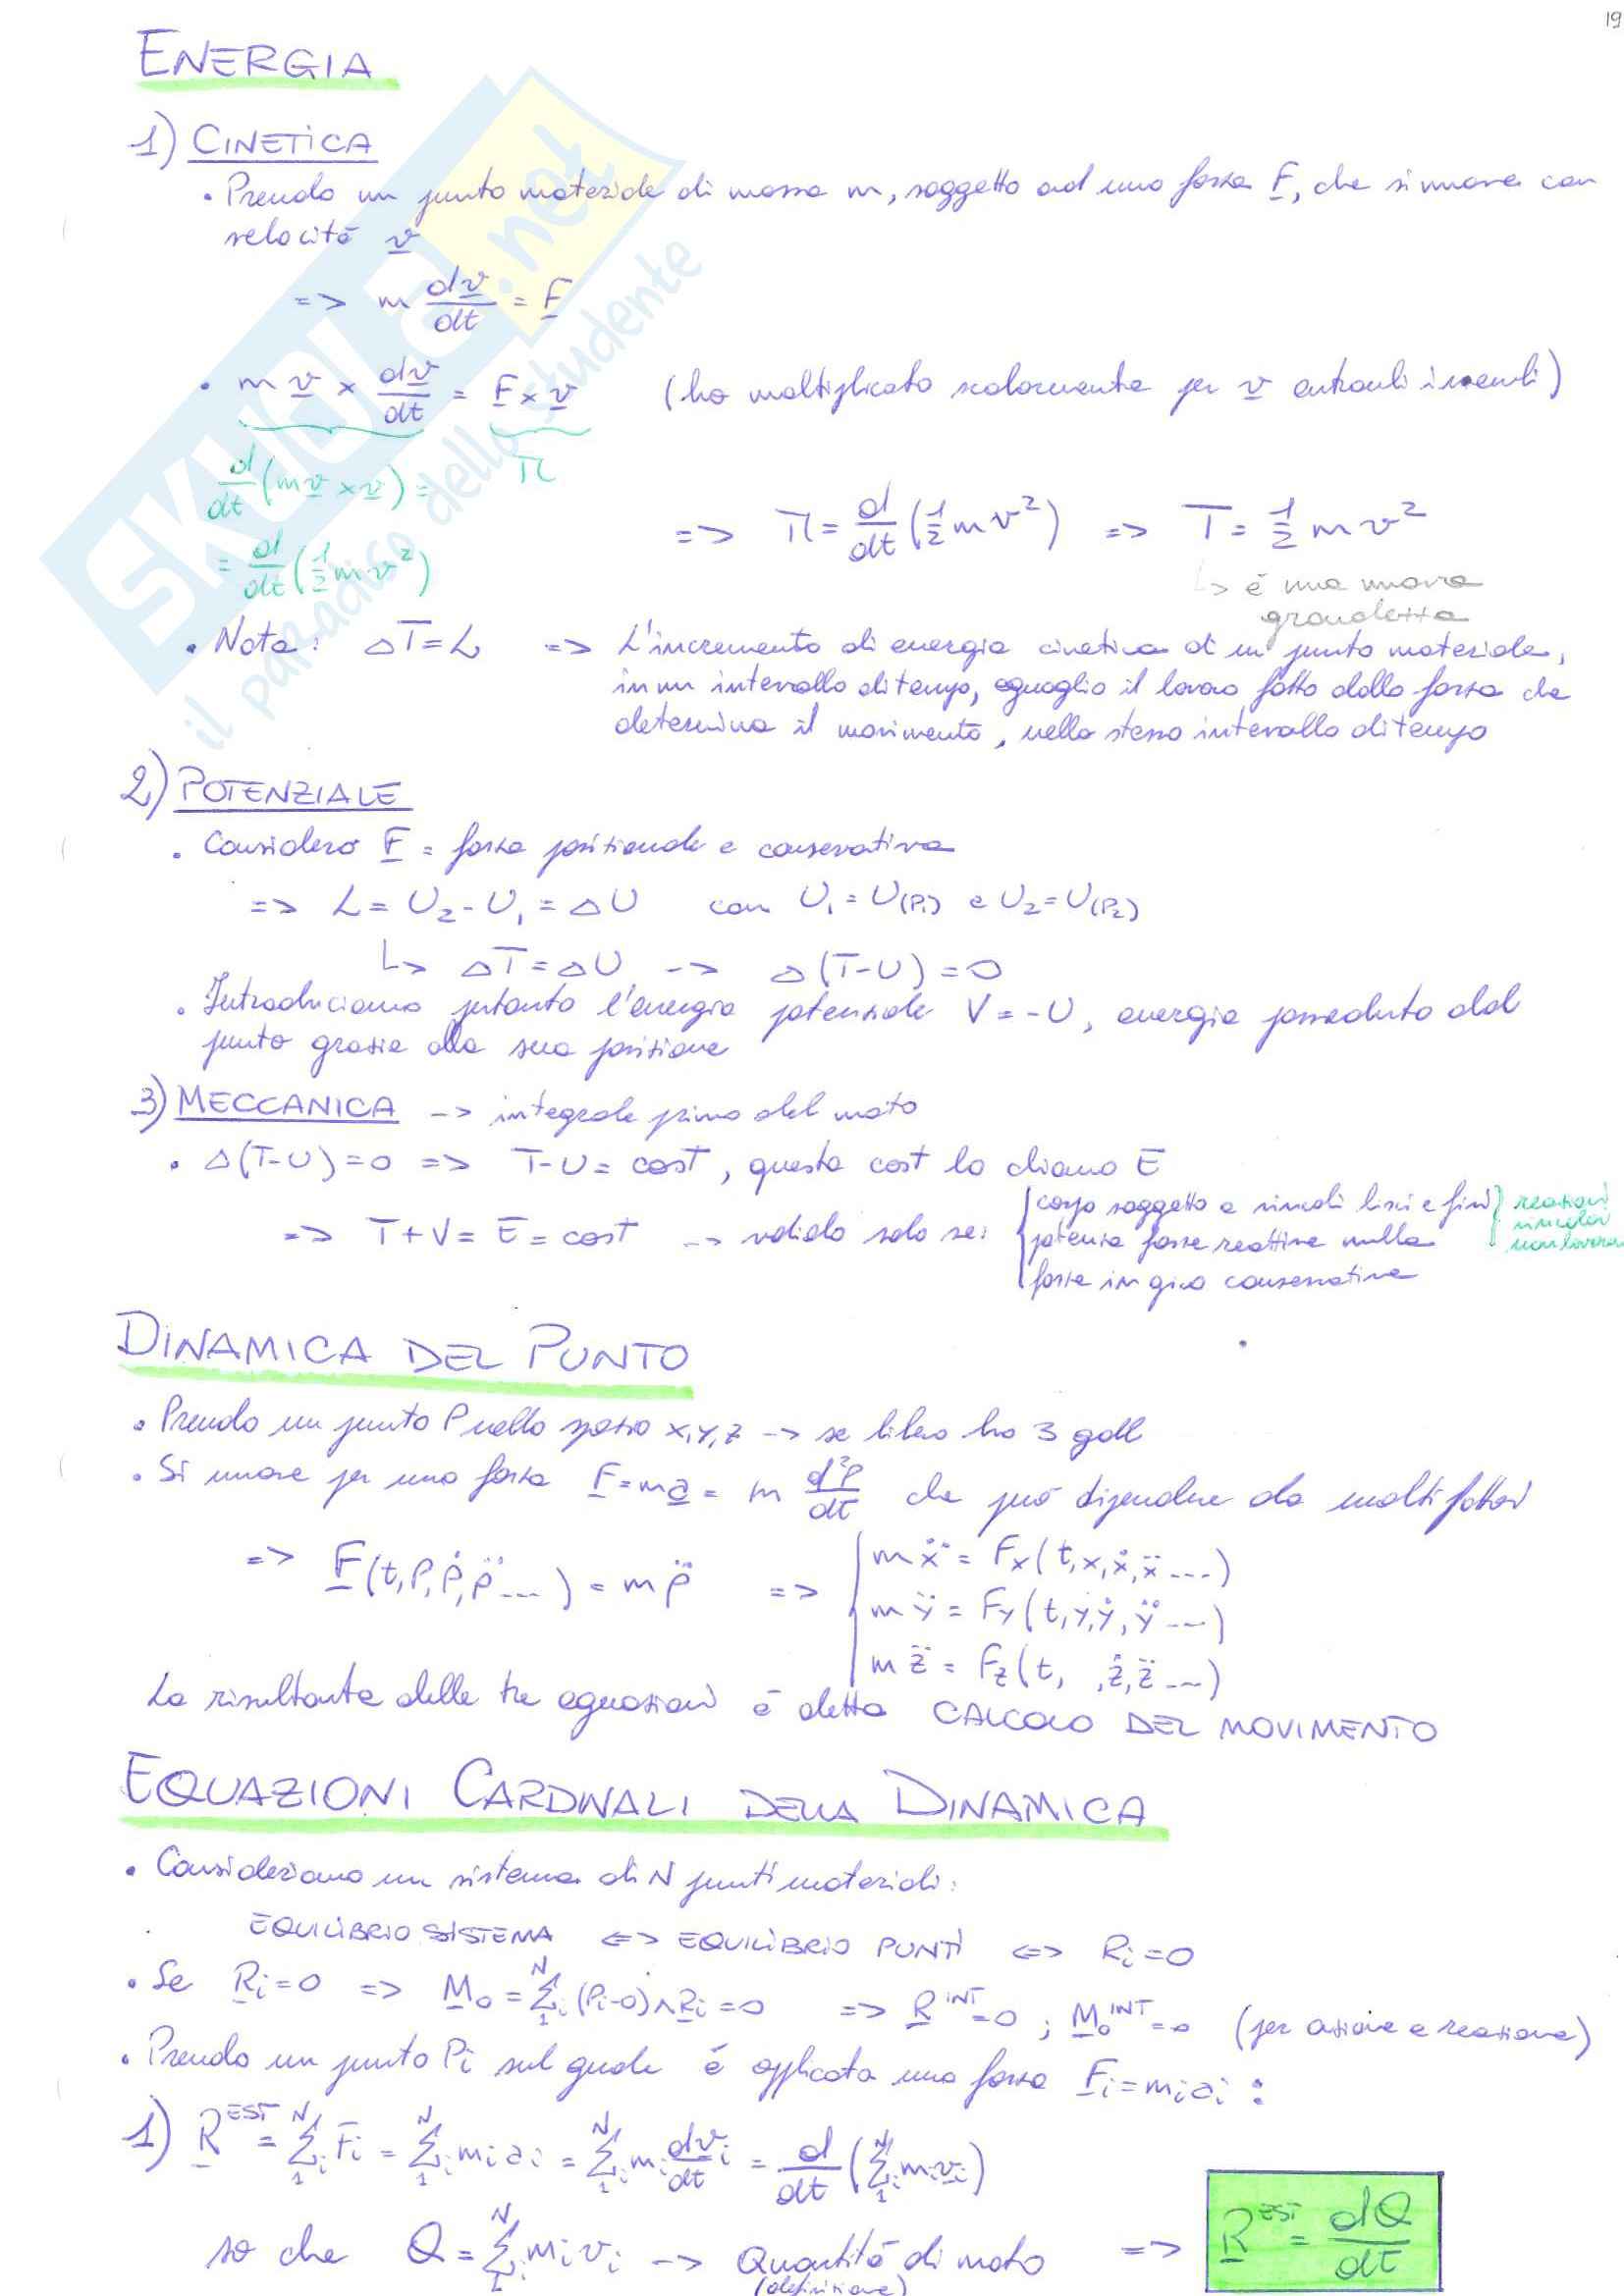 19
ENERGIA
1) CINETICA
• Prendo un punto materiale di massa m, soggetto ad una forza F, che si muove con
velocità v
=> m dv/dt = F
• m v × dv/dt = F × v (ho moltiplicato scalarmente per v entrambi i membri)
d/dt (m v × v) = π
= d/dt (1/2 m v²)
=> π = d/dt (1/2 m v²) => T = 1/2 m v²
↳ è una nuova
grandezza
• Nota: ΔT = L => L'incremento di energia cinetica di un punto materiale,
in un intervallo di tempo, eguaglia il lavoro fatto dalla forza che
determina il movimento, nello stesso intervallo di tempo
2) POTENZIALE
• Considero F = forza posizionale e conservativa
=> L = U₂ - U₁ = ΔU con U₁ = U(P₁) e U₂ = U(P₂)
↳ ΔT = ΔU -> Δ(T-U) = 0
• Introduciamo pertanto l'energia potenziale V = -U, energia posseduta dal
punto grazie alla sua posizione
3) MECCANICA -> integrale primo del moto
• Δ(T-U) = 0 => T-U = cost, questa cost la chiamo E
=> T+V = E = cost -> valido solo se: { corpo soggetto a vincoli lisci e fissi } reazioni
vincolari
non lavorano
potenza forze reattive nulla
forze in gioco conservative
DINAMICA DEL PUNTO
• Prendo un punto P nello spazio x,y,z -> se libero ho 3 gdl
• Si muove per una forza F = ma = m d²P/dt che può dipendere da molti fattori
=> F(t, P, Ṗ, P̈ ...) = m P̈ => { m ẍ = Fx (t, x, ẋ, ẍ ...)
m ÿ = Fy (t, y, ẏ, ÿ ...)
m z̈ = Fz (t, , ż, z̈ ...)
La risultante delle tre equazioni è detta CALCOLO DEL MOVIMENTO
EQUAZIONI CARDINALI DELLA DINAMICA
• Consideriamo un sistema di N punti materiali:
EQUILIBRIO SISTEMA <=> EQUILIBRIO PUNTI <=> Ri = 0
• Se Ri = 0 => Mo = Σᵢ₁ᴺ (Pi-O) ∧ Ri = 0 => R^INT = 0 ; Mo^INT = 0 (per azione e reazione)
• Prendo un punto Pi sul quale è applicata una forza Fi = mi ai :
1) R^EST = Σᵢ₁ᴺ Fi = Σᵢ₁ᴺ mi ai = Σᵢ₁ᴺ mi dvi/dt = d/dt (Σᵢ₁ᴺ mi vi)
so che Q = Σᵢ₁ᴺ mi vi -> Quantità di moto => R^EST = dQ/dt
(definizione)
SKUOLA.net
il paradiso dello studente